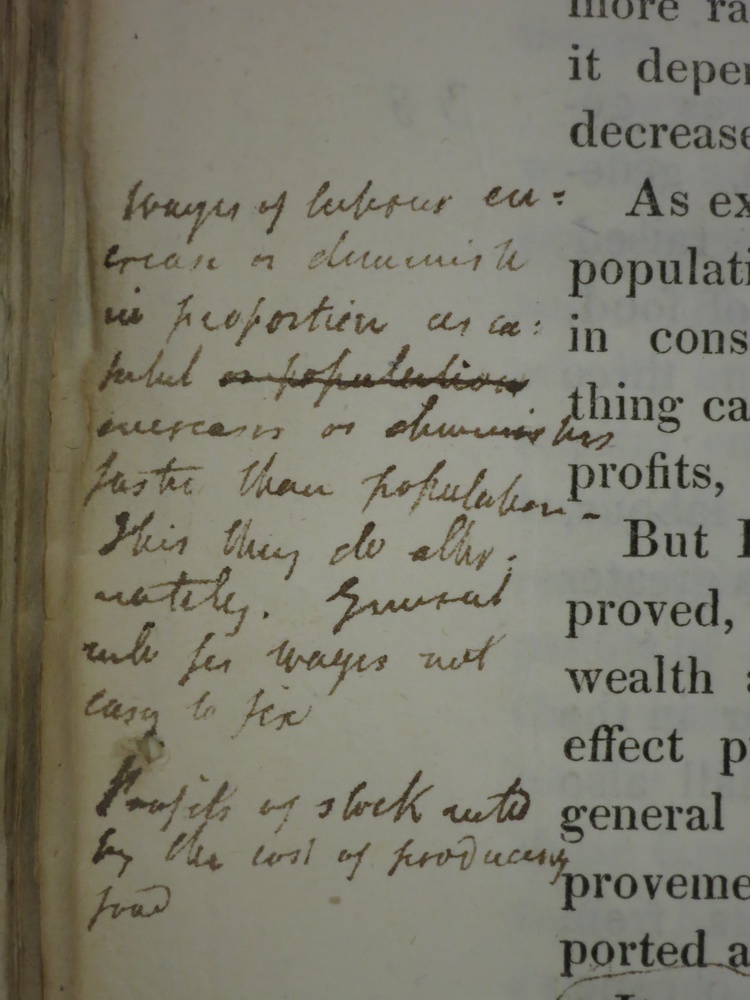 Wages of labour en=
crease or diminish
in proportion as ca=
pital or population
increases or diminishes
faster than population-
This they do alter-
nately. General
rule for wages not
easy to fix
Profits of stock ruled
by the cost of producing
food
more ra
it depe
decrease
As ex
populati
in cons
thing ca
profits,
But
proved,
wealth
effect p
general
proveme
ported a